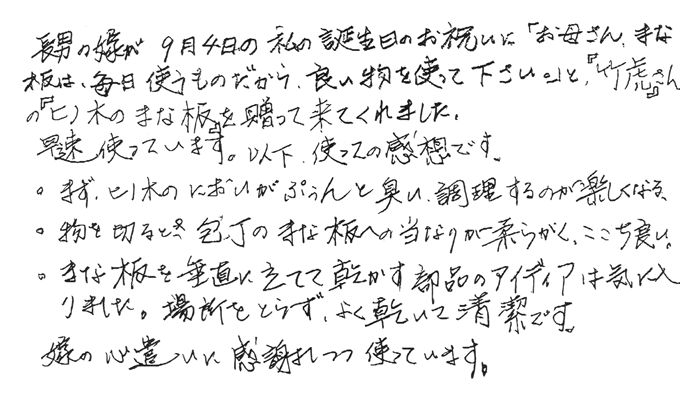 長男の嫁が9月4日の私の誕生日のお祝いに「お母さん、まな
板は、毎日使うものだから、良い物を使って下さい。」と、『竹虎』さん
の『ヒノ木のまな板』を贈って来てくれました。
早速使っています。以下、使っての感想です。
。まず、ヒノ木のにおいがぷぅんと臭い、調理するのが楽しくなる、
。物を切るとき、包丁のまな板への当たりが柔らがく、ここち良い。
。まな板を垂直に立てて乾かす部品のアイディアは気に入
りました。場所をとらず、よく乾いて清潔です。
嫁の心遣いに感謝しつつ使っています。